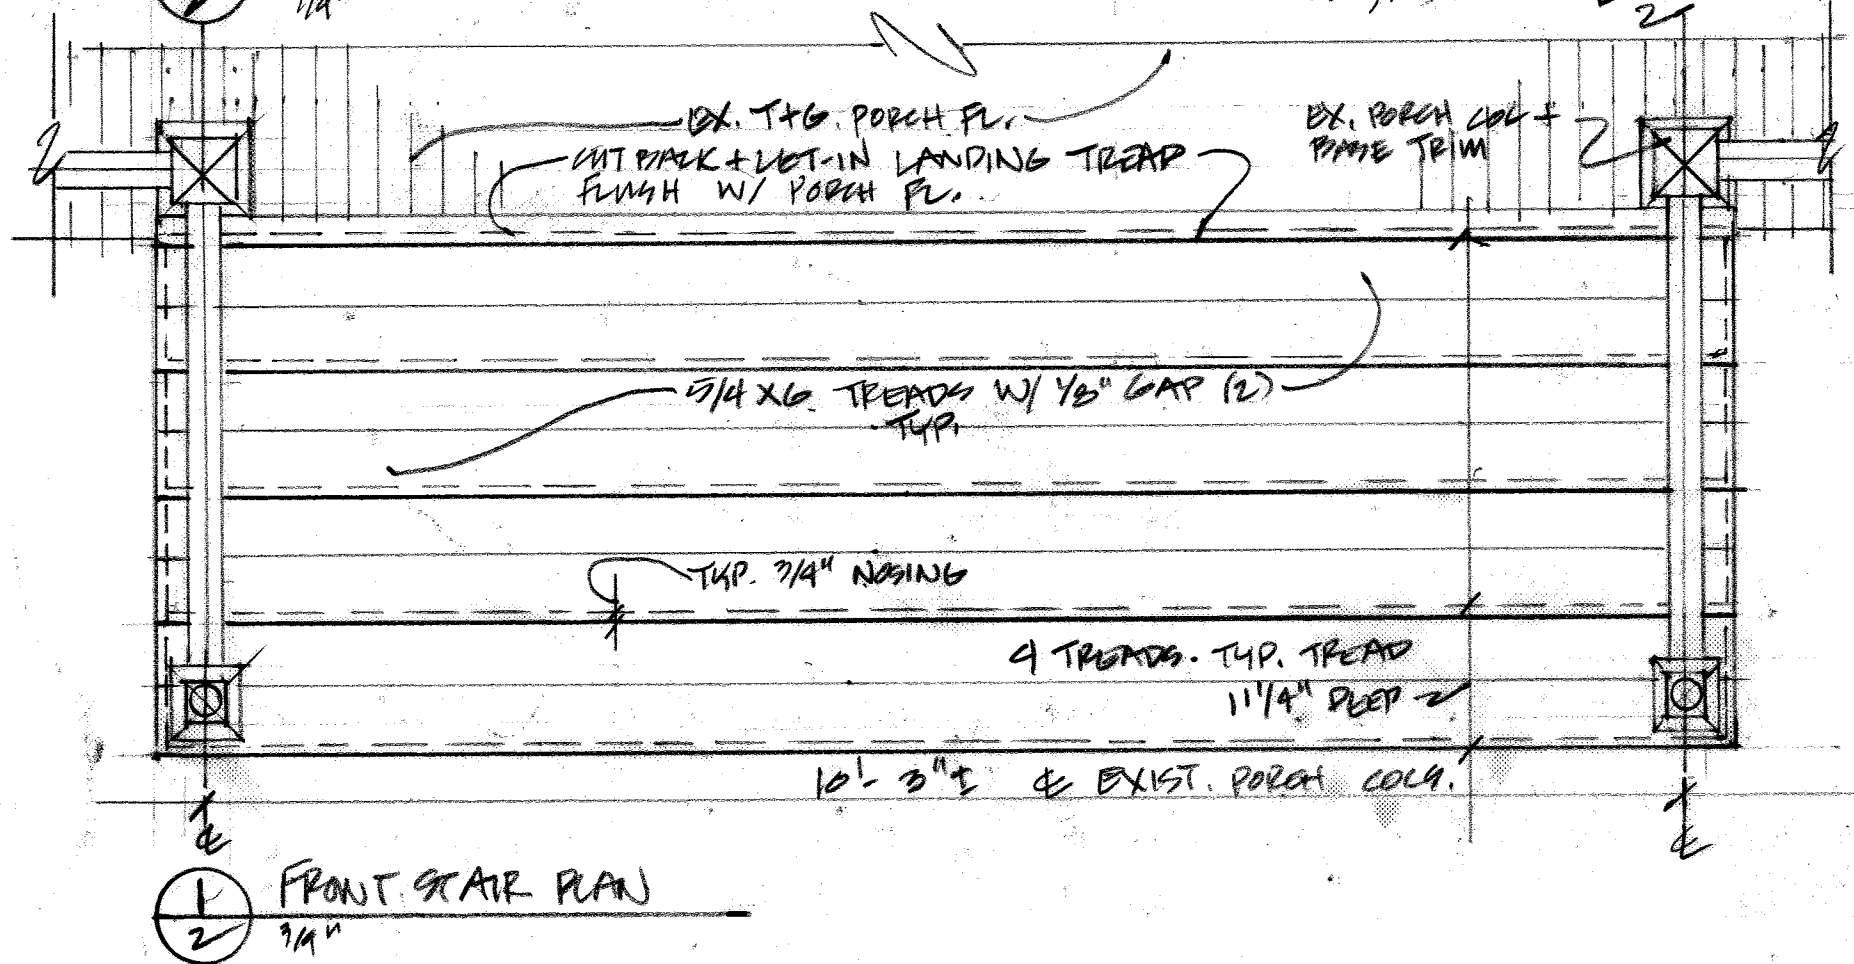 3/4"
2
EX. T+G. PORCH FL.
CUT BACK + LET-IN LANDING TREAD
FLUSH W/ PORCH FL.
EX. PORCH COL +
BASE TRIM
5/4 X6 TREADS W/ 1/8" GAP (2)
TYP.
TYP. 3/4" NOSING
4 TREADS. TYP. TREAD
11 1/4" DEEP
10'- 3"± ℄ EXIST. PORCH COLS.
℄ ℄
1
2
FRONT STAIR PLAN
3/4"